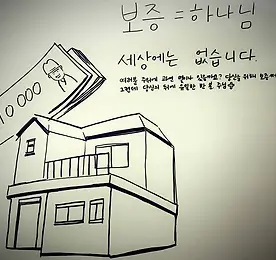 보증 = 하나님
세상에는 없습니다.
여러분 주위에 과연 몇이나 있을까요? 당신을 위해 보증
그런데 당신의 뒤에 한 분 주님
10 000